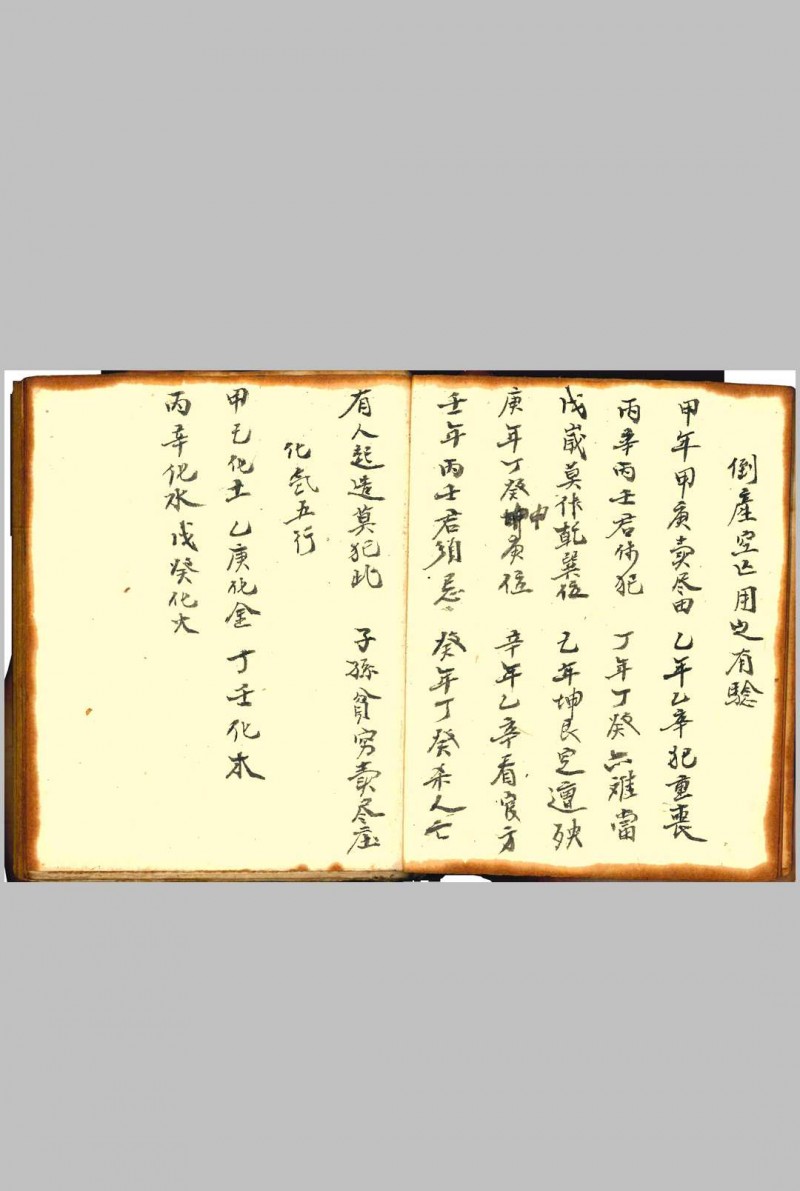 倒產空亡用之有驗
甲年甲庚卖尽田 乙年乙辛犯重喪
丙辛丙壬君休犯 丁年丁癸亦难當
戊歲莫作乾巽位 乙年坤艮定遭殃
庚年丁癸坤庚位 辛年乙辛看官方
申
壬年丙壬君須忌 癸年丁癸杀人亡
有人起造莫犯此 子孫貧穷卖尽庄
化氣五行
甲乙化土 乙庚化金 丁壬化木
丙辛化水 戊癸化火